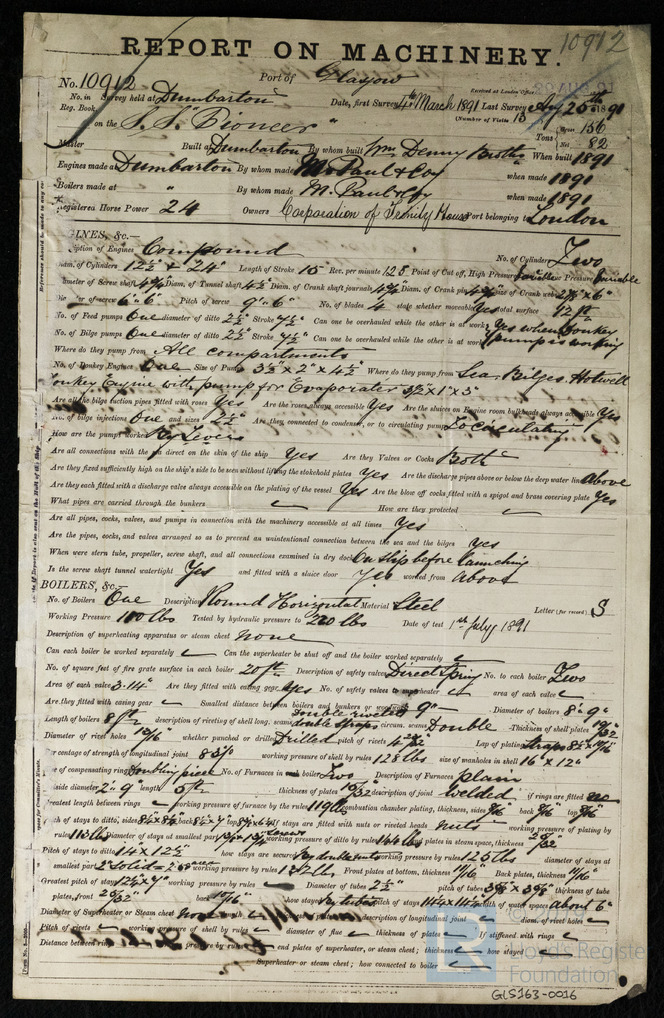 10912
REPORT ON MACHINERY.
No. 10912 Port of Glasgow Received at London Office
No. in Survey held at Dumbarton Date, first Survey 4th March 1891 Last Survey Aug 25th 1891
Reg. Book. (Number of Visits 13)
on the S.S. Pioneer Tons Gross 156 Net 82
Master Built at Dumbarton By whom built Wm Denny & Bros When built 1891
Engines made at Dumbarton By whom made M. Paul & Co when made 1891
Boilers made at " By whom made M. Paul & Co when made 1891
Registered Horse Power 24 Owners Corporation of Trinity House Port belonging to London
ENGINES, &c.—
Description of Engines Compound No. of Cylinders Two
Diam. of Cylinders 12½ + 24" Length of Stroke 15" Rev. per minute 125 Point of Cut off, High Pressure Variable Low Pressure Variable
Diameter of Screw shaft Diam. of Tunnel shaft 4½ Diam. of Crank shaft journals Diam. of Crank pin size of Crank webs
Diameter of screw 6" 6" Pitch of screw 9" 6" No. of blades 4 state whether moveable Yes total surface 12 ft
No. of Feed pumps One diameter of ditto 2½" Stroke 7½" Can one be overhauled while the other is at work Yes when Donkey
No. of Bilge pumps One diameter of ditto 2½" Stroke 7½" Can one be overhauled while the other is at work pump is working
Where do they pump from All compartments
No. of Donkey Engines One Size of Pumps 3½" x 2" x 4½" Where do they pump from Sea, Bilges, Hotwell
Donkey Engine with pump for Evaporator 3½ x 1" x 3"
Are all the bilge suction pipes fitted with roses Yes Are the roses always accessible Yes Are the sluices on Engine room bulkheads always accessible Yes
No. of bilge injections One and sizes 2½" Are they connected to condenser, or to circulating pump To circulating
How are the pumps worked By Levers
Are all connections with the sea direct on the skin of the ship Yes Are they Valves or Cocks Both
Are they fixed sufficiently high on the ship's side to be seen without lifting the stokehold plates Yes Are the discharge pipes above or below the deep water line above
Are they each fitted with a discharge valve always accessible on the plating of the vessel Yes Are the blow off cocks fitted with a spigot and brass covering plate Yes
What pipes are carried through the bunkers How are they protected
Are all pipes, cocks, valves, and pumps in connection with the machinery accessible at all times Yes
Are the pipes, cocks, and valves arranged so as to prevent an unintentional connection between the sea and the bilges Yes
When were stern tube, propeller, screw shaft, and all connections examined in dry dock On ship before launching
Is the screw shaft tunnel watertight Yes and fitted with a sluice door Yes worked from above
BOILERS, &c.—
No. of Boilers One Description Round Horizontal Material Steel Letter (for record) S
Working Pressure Tested by hydraulic pressure to 220 lbs Date of test 1st July 1891
Description of superheating apparatus or steam chest none
Can each boiler be worked separately Can the superheater be shut off and the boiler worked separately
No. of square feet of fire grate surface in each boiler 20 ft Description of safety valves Direct Spring No. to each boiler Two
Area of each valve 3.14" Are they fitted with easing gear Yes No. of safety valves to superheater area of each valve
Are they fitted with easing gear Smallest distance between boilers and bunkers or woodwork 9" Diameter of boilers 8" 9"
Length of boilers 8 ft description of riveting of shell long. seams Double riveted double straps circum. seams Double Thickness of shell plates
Diameter of rivet holes whether punched or drilled Drilled pitch of rivets Lap of plating Straps
Percentage of strength of longitudinal joint 83% working pressure of shell by rules 128 lbs size of manholes in shell 16" x 12"
size of compensating rings Doubling piece No. of Furnaces in each boiler Two Description of Furnaces plain
Outside diameter 2" 9" length 5 ft thickness of plates description of joint Welded if rings are fitted
greatest length between rings working pressure of furnace by the rules 119 lbs combustion chamber plating, thickness, sides 9/16 back 9/16 top 9/16
pitch of stays to ditto, sides back top If stays are fitted with nuts or riveted heads nuts working pressure of plating by
rules 110 lbs Diameter of stays at smallest part working pressure of ditto by rules end plates in steam space, thickness
Pitch of stays to ditto 14 x 12½ how stays are secured By double nuts working pressure by rules 125 lbs diameter of stays at
smallest part working pressure by rules Front plates at bottom, thickness 11/16 Back plates, thickness 11/16"
Greatest pitch of stays working pressure by rules Diameter of tubes 2½" pitch of tubes thickness of tube
plates, front back 11/16" how stayed By tubes pitch of stays width of water spaces about 6"
Diameter of Superheater or Steam chest none description of longitudinal joint diam. of rivet holes
Pitch of rivets working pressure of shell by rules diameter of flue thickness of plates If stiffened with rings
Distance between rings working pressure by rules end plates of superheater, or steam chest; thickness how stayed
Superheater or steam chest; how connected to boiler
Lloyd's Register
Foundation
GLS163-0016